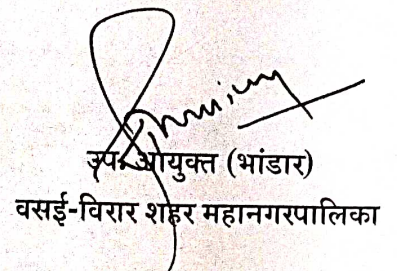 उप. आयुक्त (भांडार)
वसई-विरार शहर महानगरपालिका